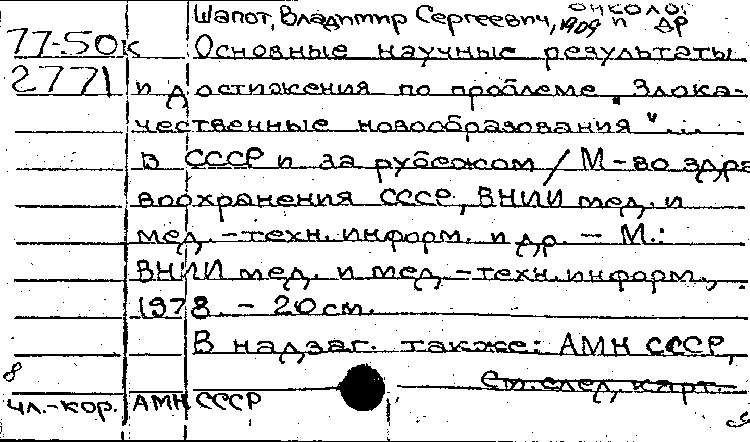 онколог
Шапот, Владимир Сергеевич, 1909 и др
77-50к Основные научные результаты
2771 и достижения по проблеме „Злока-
чественные новообразования"...
в СССР и за рубежом / М-во здра
воохранения СССР, ВНИИ мед. и
мед.-техн. информ. и др. - М.:
ВНИИ мед. и мед.-техн. информ.,
1978. - 20 см.
В надзаг. также: АМН СССР,
См. след. карт.
8
чл.-кор. АМН СССР